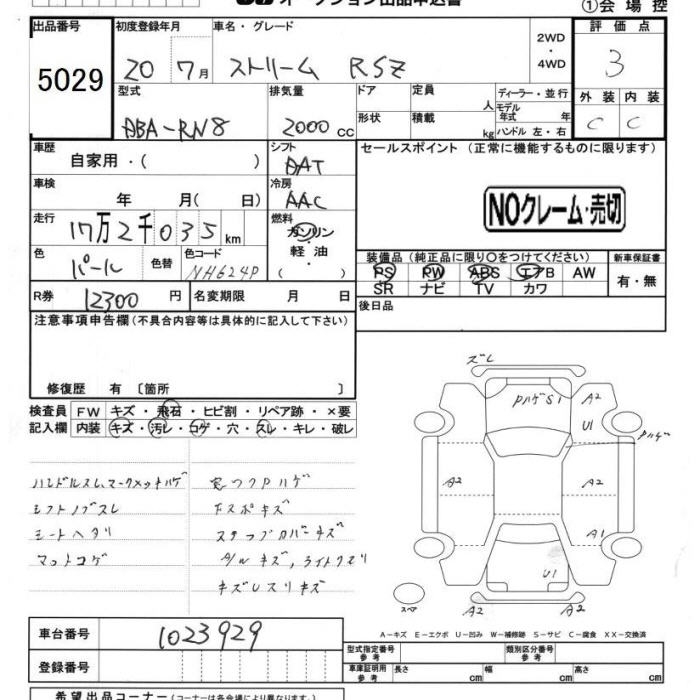 オークション出品申込書
①会場控
出品番号 5029
初度登録年月 20 7月
車名・グレード ストリーム RSZ
2WD・4WD
評価点 3
型式 ABA-RN8
排気量 2000 CC
ドア 定員 人
形状 積載 kg
ディーラー・並行
モデル年式 年
ハンドル 左・右
外装 C 内装 C
車歴 自家用・( )
シフト DAT
セールスポイント (正常に機能するものに限ります)
車検 年 月( 日)
冷房 AAC
NOクレーム・売切
走行 17万2千035 km
燃料 ガソリン・軽油・( )
色 パール 色替 色コード NH624P
装備品 (純正品に限り○をつけてください) 新車保証書
PS PW ABS エアB AW 有・無
SR ナビ TV カワ
R券 12300 円 名変期限 月 日
後日品
注意事項申告欄(不具合内容等は具体的に記入して下さい)
修復歴 有 〔箇所 〕
検査員記入欄 FW キズ・飛石・ヒビ割・リペア跡・×要
内装 キズ・汚レ・コゲ・穴・スレ・キレ・破レ
ハンドルスレ、マークメッキハゲ
シフトノブスレ
シートヘタリ
マットコゲ
窓ワクPハゲ
ドスポキズ
ステップカバーキズ
A/Wキズ,ライトクモリ
キズUスリキズ
ズレ
PハゲS1 A2
U1
Pハゲ
A2 A2
A1
U1
スペア A2 A2
A-キズ E-エクボ U-凹み W-補修跡 S-サビ C-腐食 XX-交換済
車台番号 1023929
登録番号
型式指定番号 参考 類別区分番号 参考
車庫証明用 参考 長さ cm 幅 cm 高さ cm
希望出品コーナー(コーナーは各会場により異なります)